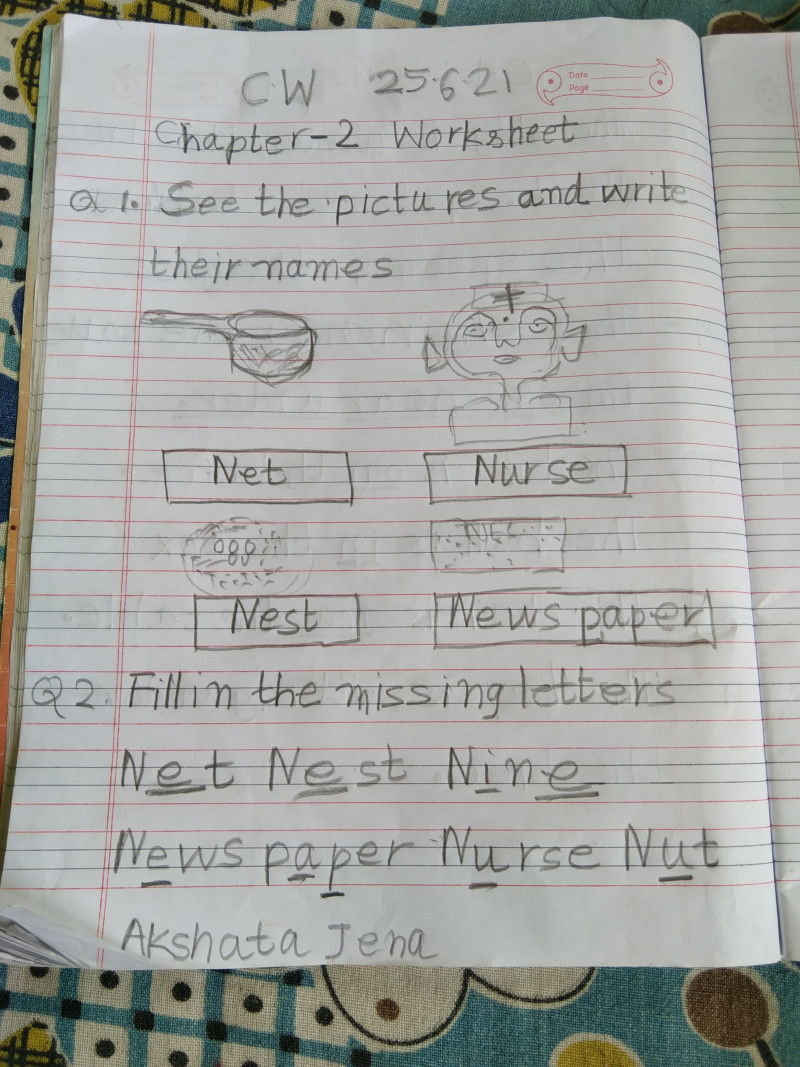 CW 25.6.21
Date
Page
Chapter-2 Worksheet
Q 1. See the pictures and write
their names
Net Nurse
Nest News paper
Q 2. Fill in the missing letters
Net Nest Nine
News paper Nurse Nut
Akshata Jena